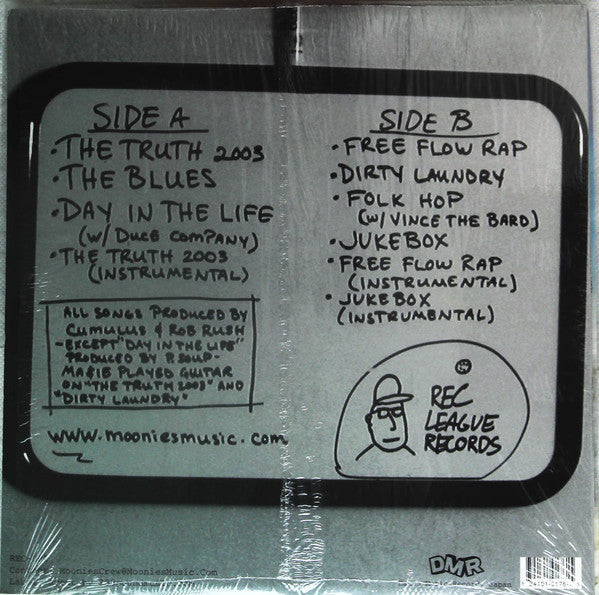 SIDE A
• THE TRUTH 2003
• THE BLUES
• DAY IN THE LIFE
(W/ DUCE COMPANY)
• THE TRUTH 2003
(INSTRUMENTAL)
ALL SONGS PRODUCED BY
CUMULUS & ROB RUSH
-EXCEPT "DAY IN THE LIFE"
PRODUCED BY P. SOUP-
MAGIE PLAYED GUITAR
ON "THE TRUTH 2003" AND
"DIRTY LAUNDRY"
www.mooniesmusic.com
SIDE B
• FREE FLOW RAP
• DIRTY LAUNDRY
• FOLK HOP
(W/ VINCE THE BARD)
• JUKEBOX
• FREE FLOW RAP
(INSTRUMENTAL)
• JUKEBOX
(INSTRUMENTAL)
REC
LEAGUE
RECORDS
REC
MooniesCrew@MooniesMusic.Com
DMR
Japan